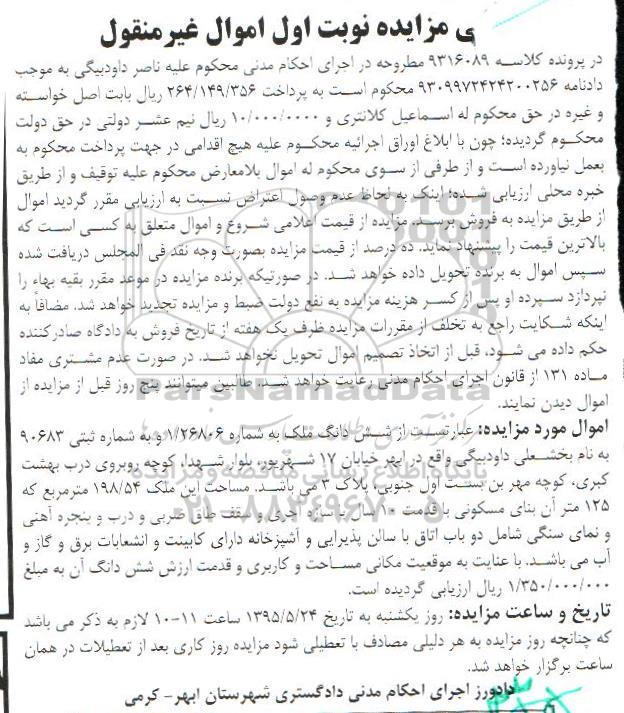 ی مزایده نوبت اول اموال غیرمنقول
در پرونده کلاسه ۹۳۱۶۰۸۹ مطروحه در اجرای احکام مدنی محکوم علیه ناصر داودبیگی به موجب
دادنامه ۹۳۰۹۹۷۲۴۲۴۲۰۰۲۵۶ محکوم است به پرداخت ۲۶۴/۱۴۹/۳۵۶ ریال بابت اصل خواسته
و غیره در حق محکوم له اسماعیل کلانتری و ۱۰/۰۰۰/۰۰۰۰ ریال نیم عشر دولتی در حق دولت
محکوم گردیده؛ چون با ابلاغ اوراق اجرائیه محکوم علیه هیچ اقدامی در جهت پرداخت محکوم به
بعمل نیاورده است و از طرفی از سوی محکوم له اموال بلامعارض محکوم علیه توقیف و از طریق
خبره محلی ارزیابی شده؛ اینک به لحاظ عدم وصول اعتراض نسبت به ارزیابی مقرر گردید اموال
از طریق مزایده به فروش برسد. مزایده از قیمت اعلامی شروع و اموال متعلق به کسی است که
بالاترین قیمت را پیشنهاد نماید. ده درصد از قیمت مزایده بصورت وجه نقد فی المجلس دریافت شده
سپس اموال به برنده تحویل داده خواهد شد. در صورتیکه برنده مزایده در موعد مقرر بقیه بهاء را
نپردازد سپرده او پس از کسر هزینه مزایده به نفع دولت ضبط و مزایده تجدید خواهد شد. مضافاً به
اینکه شکایت راجع به تخلف از مقررات مزایده ظرف یک هفته از تاریخ فروش به دادگاه صادرکننده
حکم داده می شود، قبل از اتخاذ تصمیم اموال تحویل نخواهد شد. در صورت عدم مشتری مفاد
ماده ۱۳۱ از قانون اجرای احکام مدنی رعایت خواهد شد. طالبین میتوانند پنج روز قبل از مزایده از
اموال دیدن نمایند.
اموال مورد مزایده: عبارتست از شش دانگ ملک به شماره ۱/۲۶۸۰۶ و به شماره ثبتی ۹۰۶۸۳
به نام بخشعلی داودبیگی واقع در ابهر خیابان ۱۷ شهریور، بلوار شهدا، کوچه روبروی درب بهشت
کبری، کوچه مهر بن بست اول جنوبی، پلاک ۳ می باشد. مساحت این ملک ۱۹۸/۵۴ مترمربع که
۱۲۵ متر آن بنای مسکونی با قدمت ۱۰ سال با سازه آجری و سقف طاق ضربی و درب و پنجره آهنی
و نمای سنگی شامل دو باب اتاق با سالن پذیرایی و آشپزخانه دارای کابینت و انشعابات برق و گاز و
آب می باشد. با عنایت به موقعیت مکانی مساحت و کاربری و قدمت ارزش شش دانگ آن به مبلغ
۱/۳۵۰/۰۰۰/۰۰۰ ریال ارزیابی گردیده است.
تاریخ و ساعت مزایده: روز یکشنبه به تاریخ ۱۳۹۵/۵/۲۴ ساعت ۱۱-۱۰ لازم به ذکر می باشد
که چنانچه روز مزایده به هر دلیلی مصادف با تعطیلی شود مزایده روز کاری بعد از تعطیلات در همان
ساعت برگزار خواهد شد.
دادورز اجرای احکام مدنی دادگستری شهرستان ابهر- کرمی
ParsNamadData
پایگاه اطلاع رسانی مناقصه و مزایده
۰۲۱-۸۸۳۴۹۶۷۰-۵